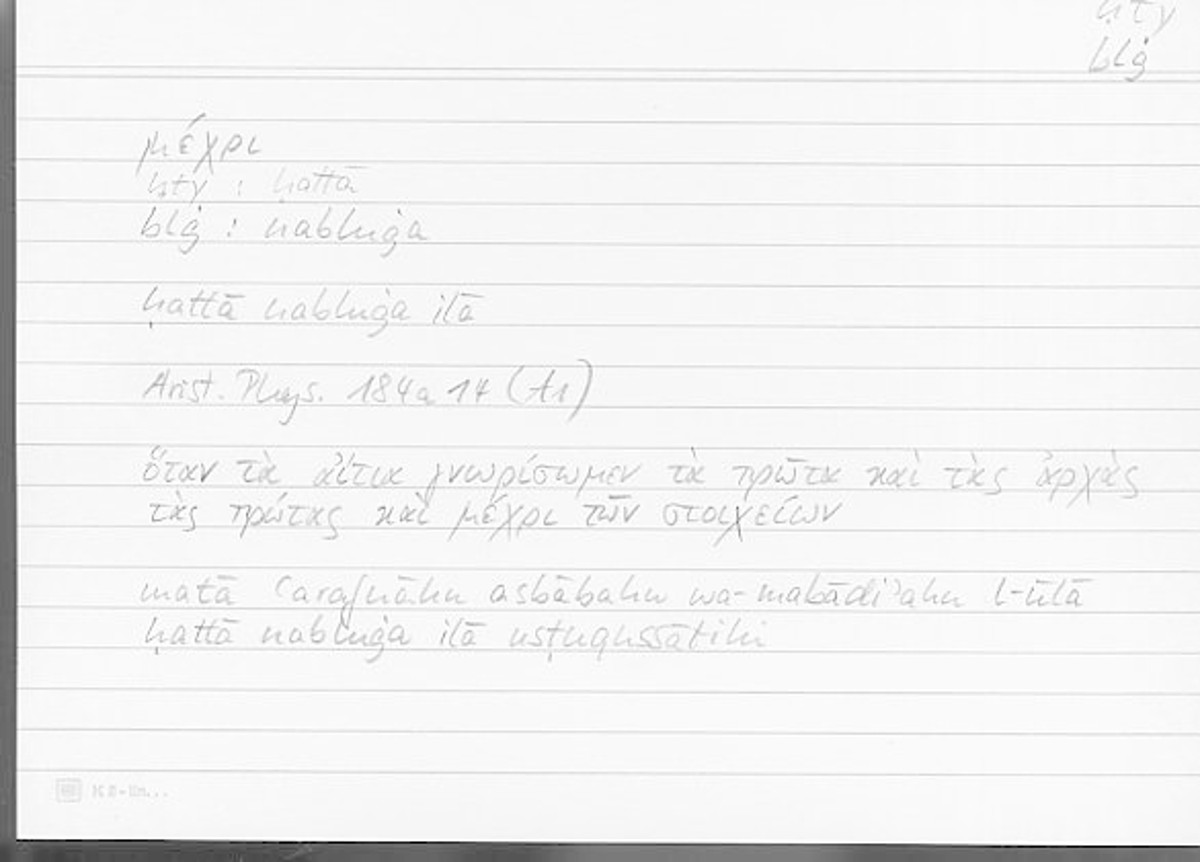 ḥty
blġ
μέχρι
ḥty : ḥattā
blġ : nabluġa
ḥattā nabluġa ilā
Arist. Phys. 184a 14 (A1)
ὅταν τὰ αἴτια γνωρίσωμεν τὰ πρῶτα καὶ τὰς ἀρχὰς
τὰς πρώτας καὶ μέχρι τῶν στοιχείων
matā ʿarafnāhu asbābahu wa-mabādiʾahu l-ūlā
ḥattā nabluġa ilā usṭuqussātihi